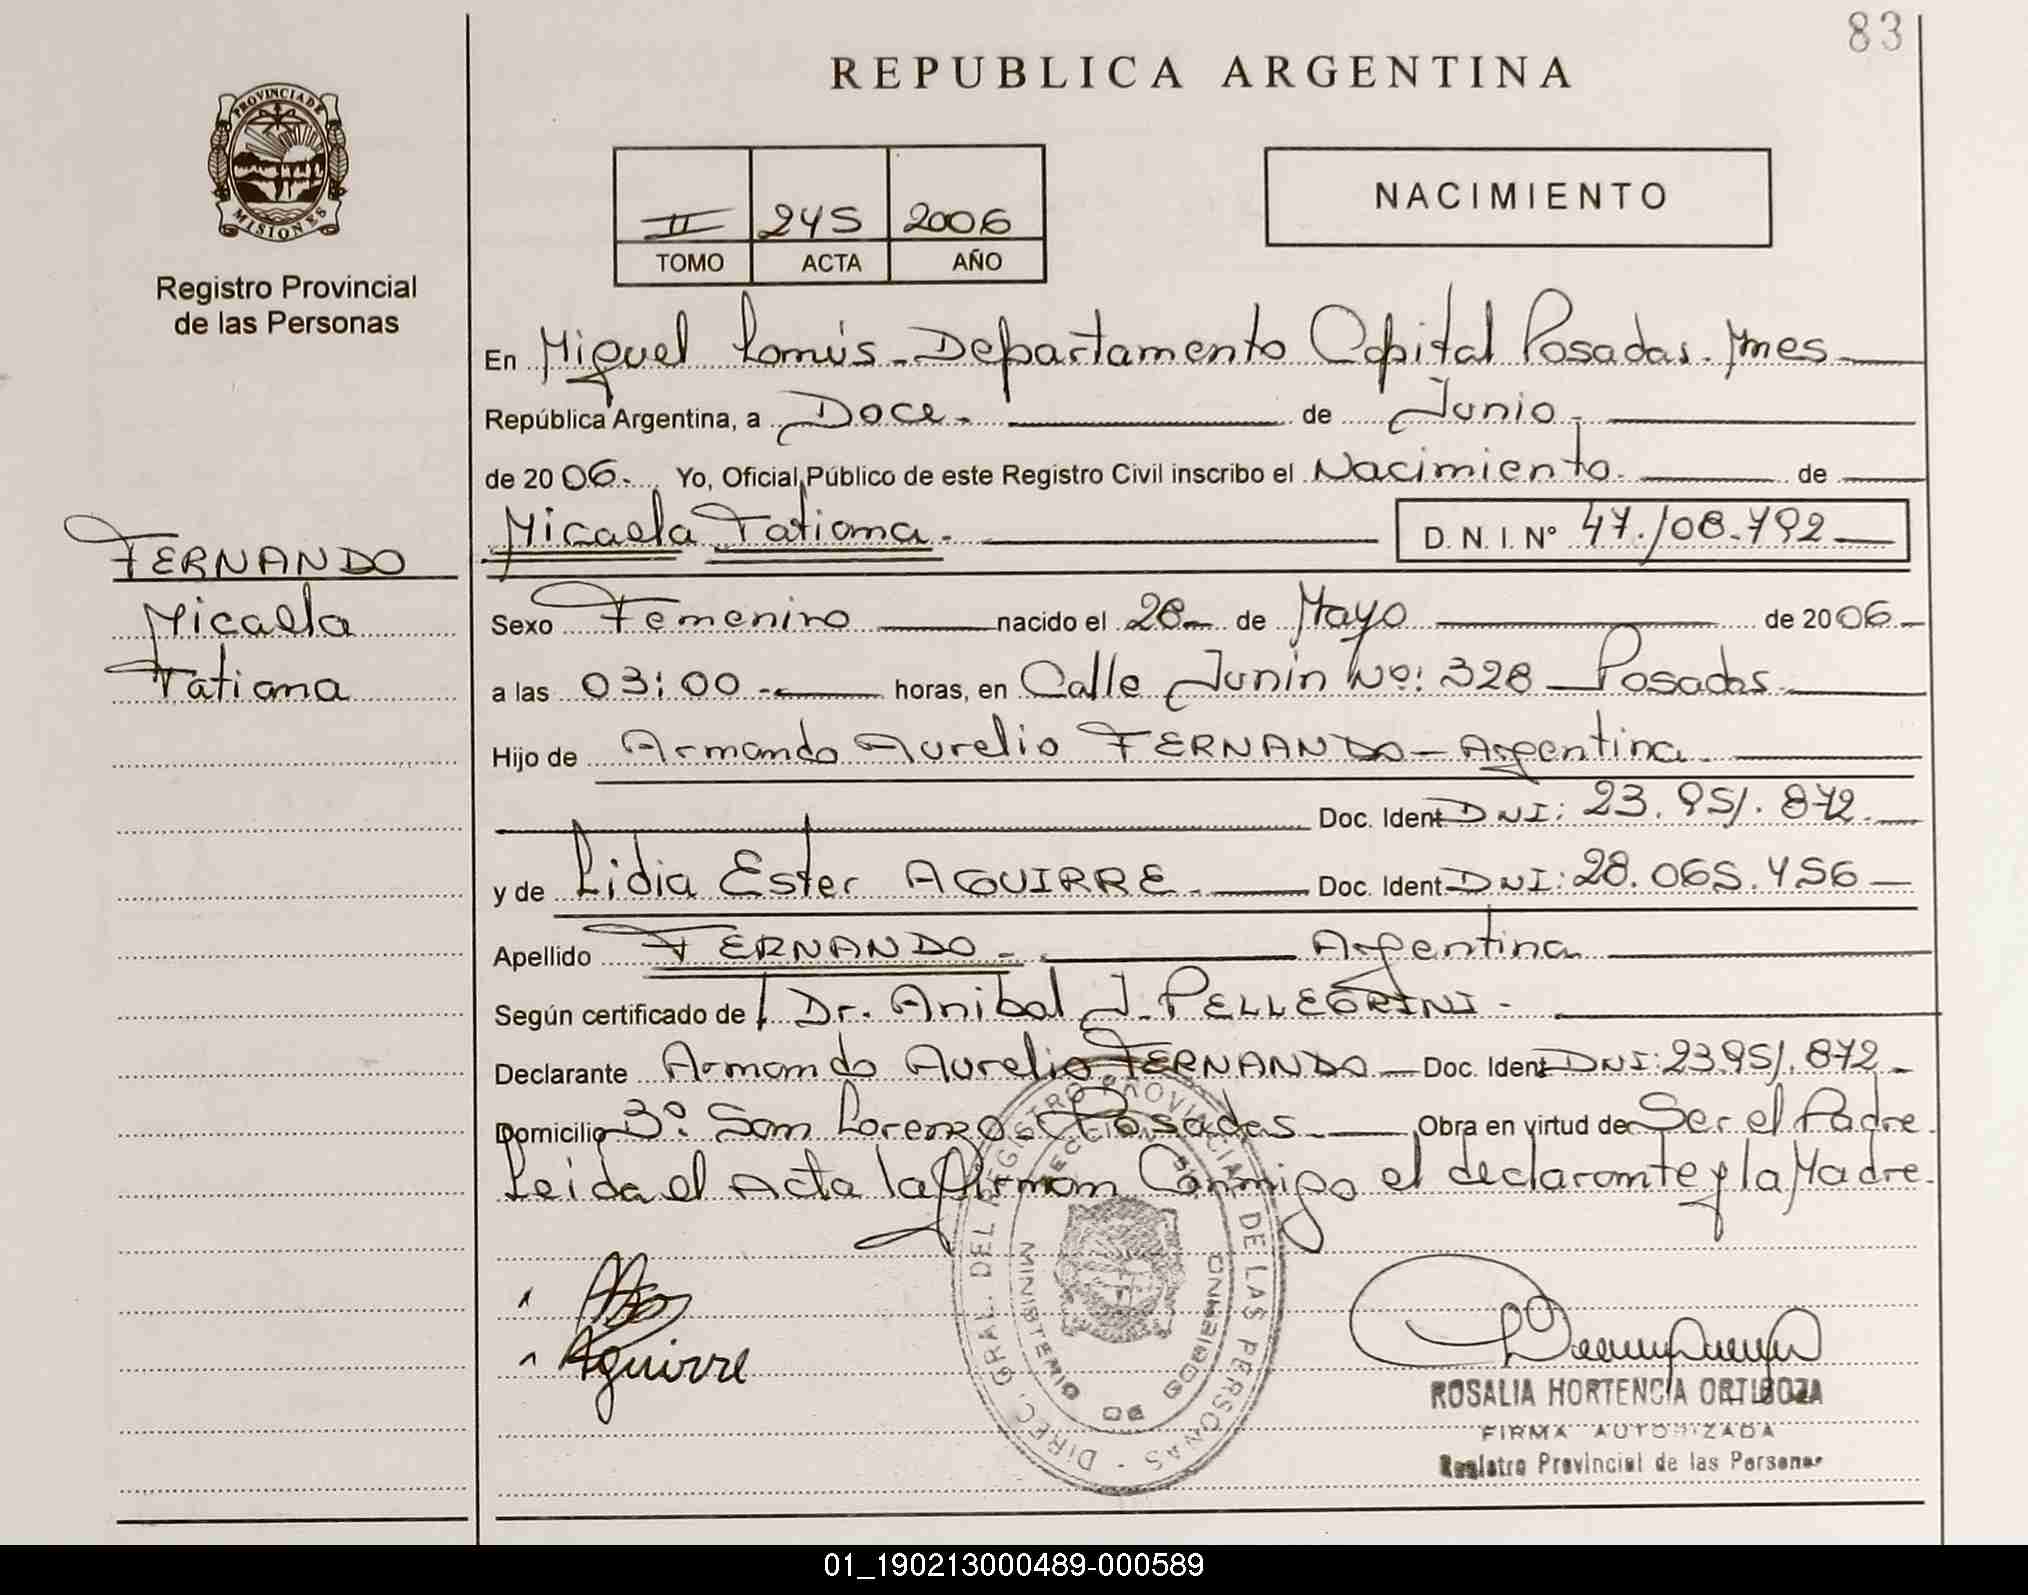 83
REPUBLICA ARGENTINA
PROVINCIA DE
MISIONES
Registro Provincial
de las Personas
II 245 2006
TOMO ACTA AÑO
NACIMIENTO
En Miguel Lanús - Departamento Capital Posadas. Mnes
República Argentina, a Doce. de Junio -
de 2006. Yo, Oficial Público de este Registro Civil inscribo el Nacimiento. de
Micaela Tatiana. D. N. I. Nº 47.108.792
FERNANDO
Micaela
Tatiana
Sexo Femenino nacido el 28 de Mayo de 2006
a las 03:00 - horas, en Calle Junin Nº: 328 - Posadas.
Hijo de Armando Aurelio FERNANDO - Argentina
Doc. Ident DNI: 23.951.872.
y de Lidia Ester AGUIRRE. Doc. Ident DNI: 28.065.456
Apellido FERNANDO - Argentina
Según certificado de Dr. Anibal J. PELLEGRINI -
Declarante Armando Aurelio FERNANDO - Doc. Ident DNI: 23.951.872
Domicilio 3º San Lorenzo - Posadas. Obra en virtud de Ser el Padre.
Leida el Acta la firman Conmigo el declarante y la Madre.
Aguirre
DIREC. GRAL. DEL REGISTRO PROVINCIAL DE LAS PERSONAS -
MINISTERIO DE GOBIERNO
ROSALIA HORTENCIA ORTIGOZA
FIRMA AUTORIZADA
Registro Provincial de las Personas
01_190213000489-000589